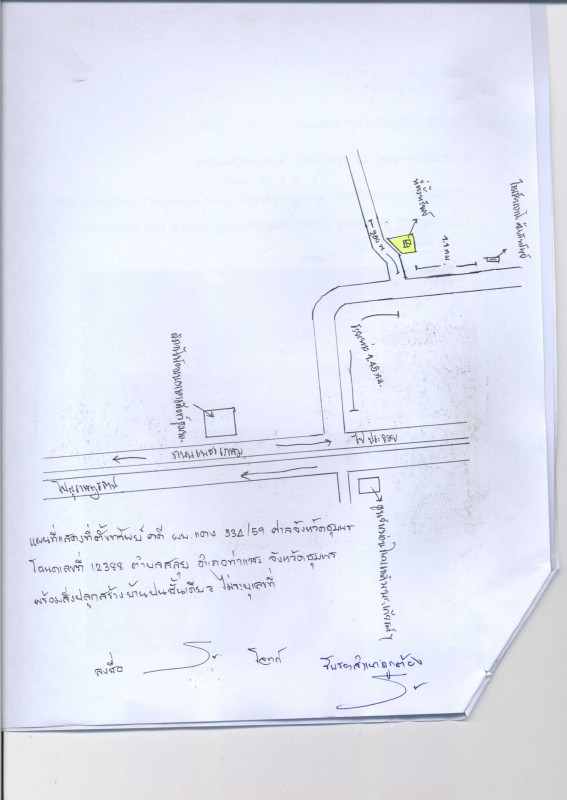 ที่ตั้งทรัพย์
900 ม
1.1 กม.
ระยะทาง 1.45 กม.
ไป ประจวบ
ถนนเพชรเกษม
ไปสุราษฎร์ธานี
แผนที่แสดงที่ตั้งทรัพย์ คดี ผบ.แดง 334/59 ศาลจังหวัดชุมพร
โฉนดเลขที่ 12388 ตำบลสลุย อำเภอท่าแซะ จังหวัดชุมพร
พร้อมสิ่งปลูกสร้างบ้านปูนชั้นเดียว ไม่ระบุเลขที่
ลงชื่อ โจทก์
รับรองสำเนาถูกต้อง